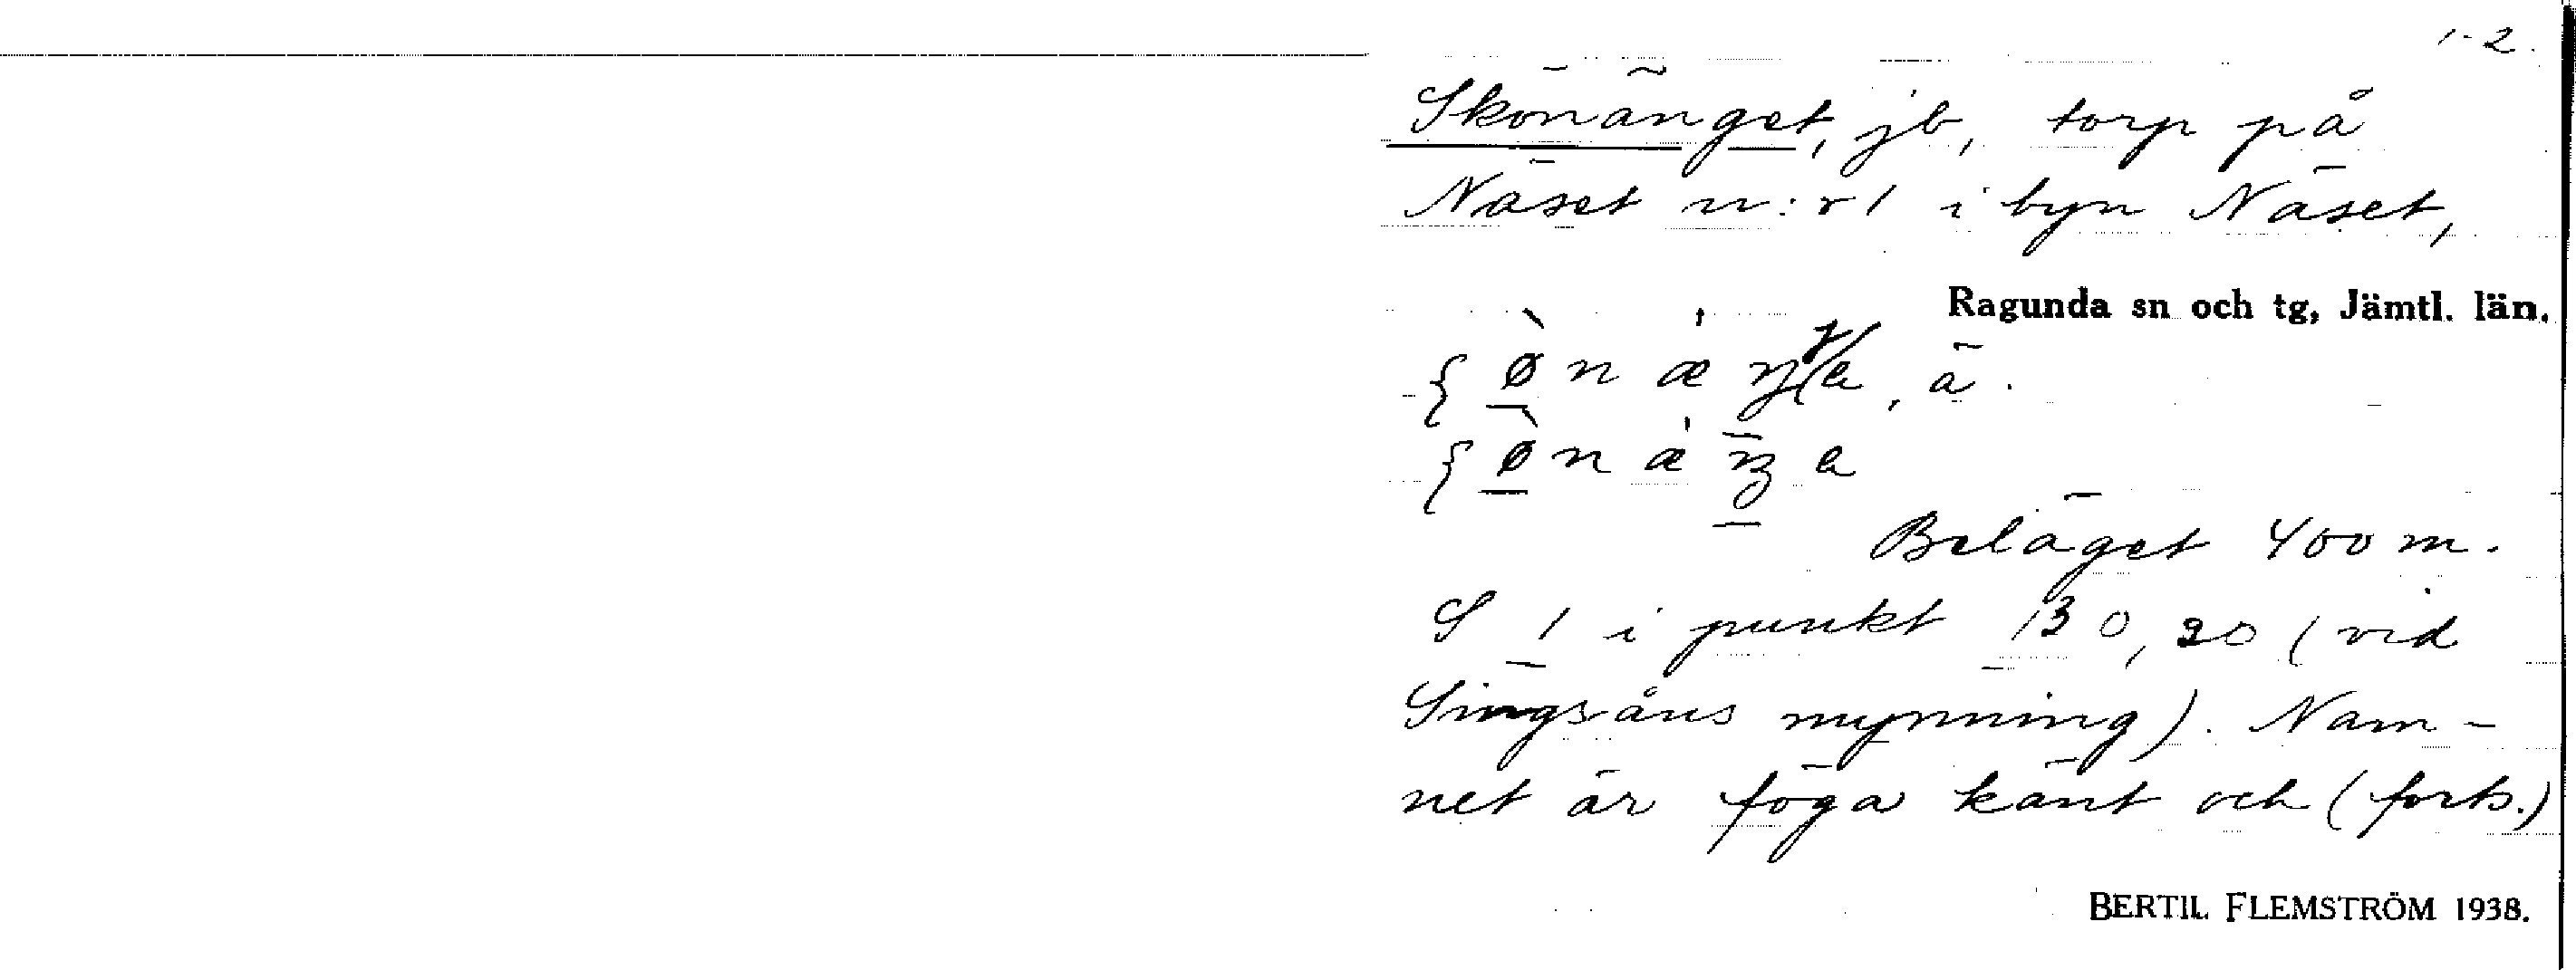 1-2.
Skönänget, jb, torp på
Näset n:r 1 i byn Näset,
Ragunda sn och tg, Jämtl. län.
ä.
Beläget 400 m.
S 1 i punkt 130,20 (vid
Singsåns mynning). Nam-
net är föga känt och (forts.)
BERTIL FLEMSTRÖM 1938.